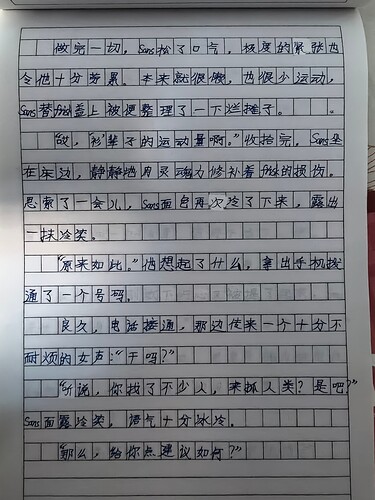 做完一切，Sans松了口气，极度的紧张也
令他十分劳累。本来就很懒，也很少运动，
Sans替frisk盖上被便整理了一下烂摊子。
“欸，1衫'辈子的运动量啊。”收拾完，Sans坐
在床边，静静地用灵魂力修补着frisk的损伤。
思索了一会儿，Sans面色再次冷了下来，露出
一抹冷笑。
“原来如此。”他想起了什么，拿出手机拨
通了一个号码。
良久，电话接通，那边传来一个十分不
耐烦的女声：“干吗？”
“听说，你找了不少人，来抓人类？是吧？”
Sans面露冷笑，语气十分冰冷。
“那么，给你点建议如何？”